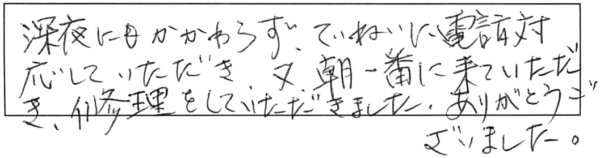 深夜にもかかわらず、ていねいに電話対
応していただき、又、朝一番に来ていただ
き、修理をしていただきました。ありがとうご
ざいました。